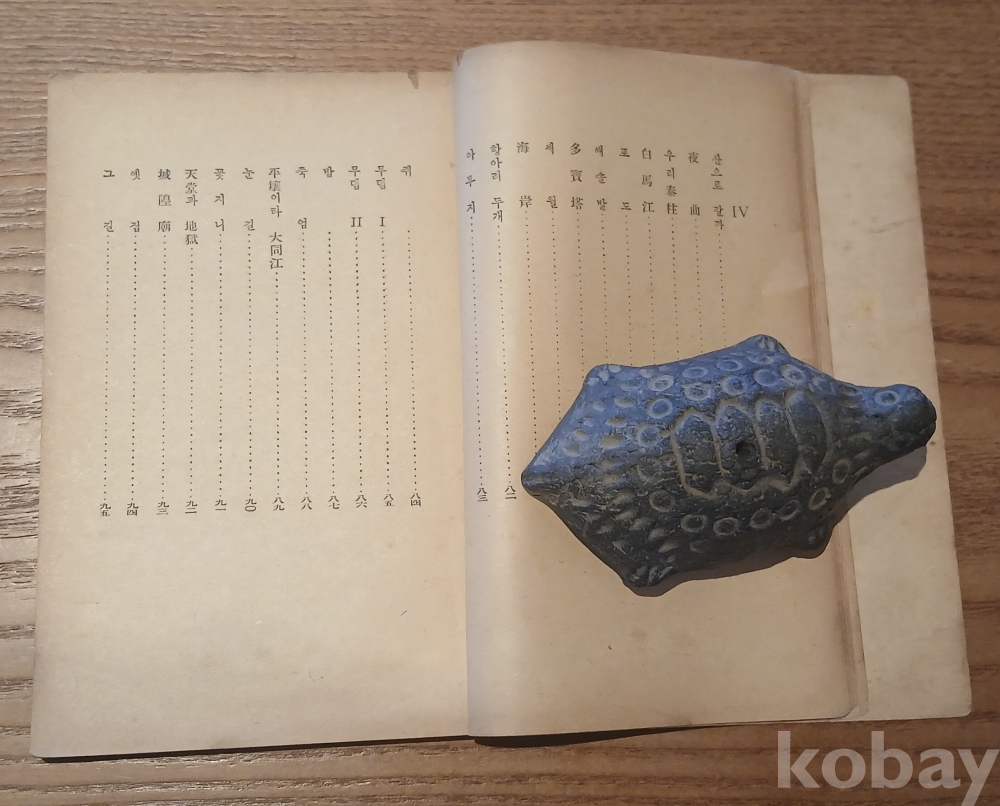 IV
산으로 갈까
夜曲
우리泰柱
白馬江
포도
多寶塔
세월
海岸
항아리 두개 八二
아루지 八三
쥐 八四
무덤 I 八五
무덤 II 八六
밤 八七
죽엄 八八
平壤이라 大同江 八九
눈길 九〇
꽃지니 九一
天堂과 地獄 九二
城隍廟 九三
옛집 九四
그길 九五
kobay